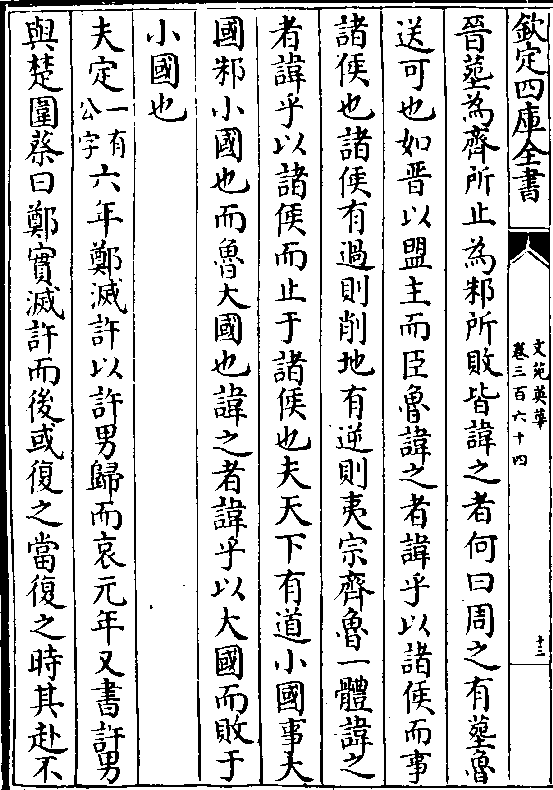 欽定四庫全書
文苑英華
卷三百六十四
十三
晉𦵏為齊所止為邾所敗皆諱之者何曰周之有𦵏魯
送可也如晋以盟主而臣魯諱之者諱乎以諸侯而事
諸侯也諸侯有過則削地有逆則夷宗齊魯一體諱之
者諱乎以諸侯而止于諸侯也夫天下有道小國事大
國邾小國也而魯大國也諱之者諱乎以大國而敗于
小國也
夫定一有公字六年鄭滅許以許男歸而哀元年又書許男
與楚圍蔡曰鄭實滅許而後或復之當復之時其赴不